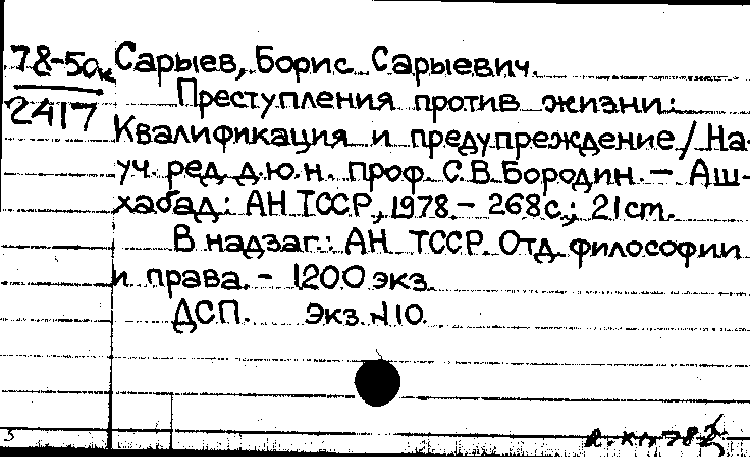 78-5ак Сарыев, Борис Сарыевич.
2417 Преступления против жизни:
Квалификация и предупреждение / На-
уч. ред. д.ю.н. проф. С.В. Бородин. — Аш-
хабад: АН ТССР, 1978. - 268 с.; 21 ст.
В надзаг.: АН ТССР. Отд. философии
и права. - 1200 экз.
ДСП. Экз. N 10